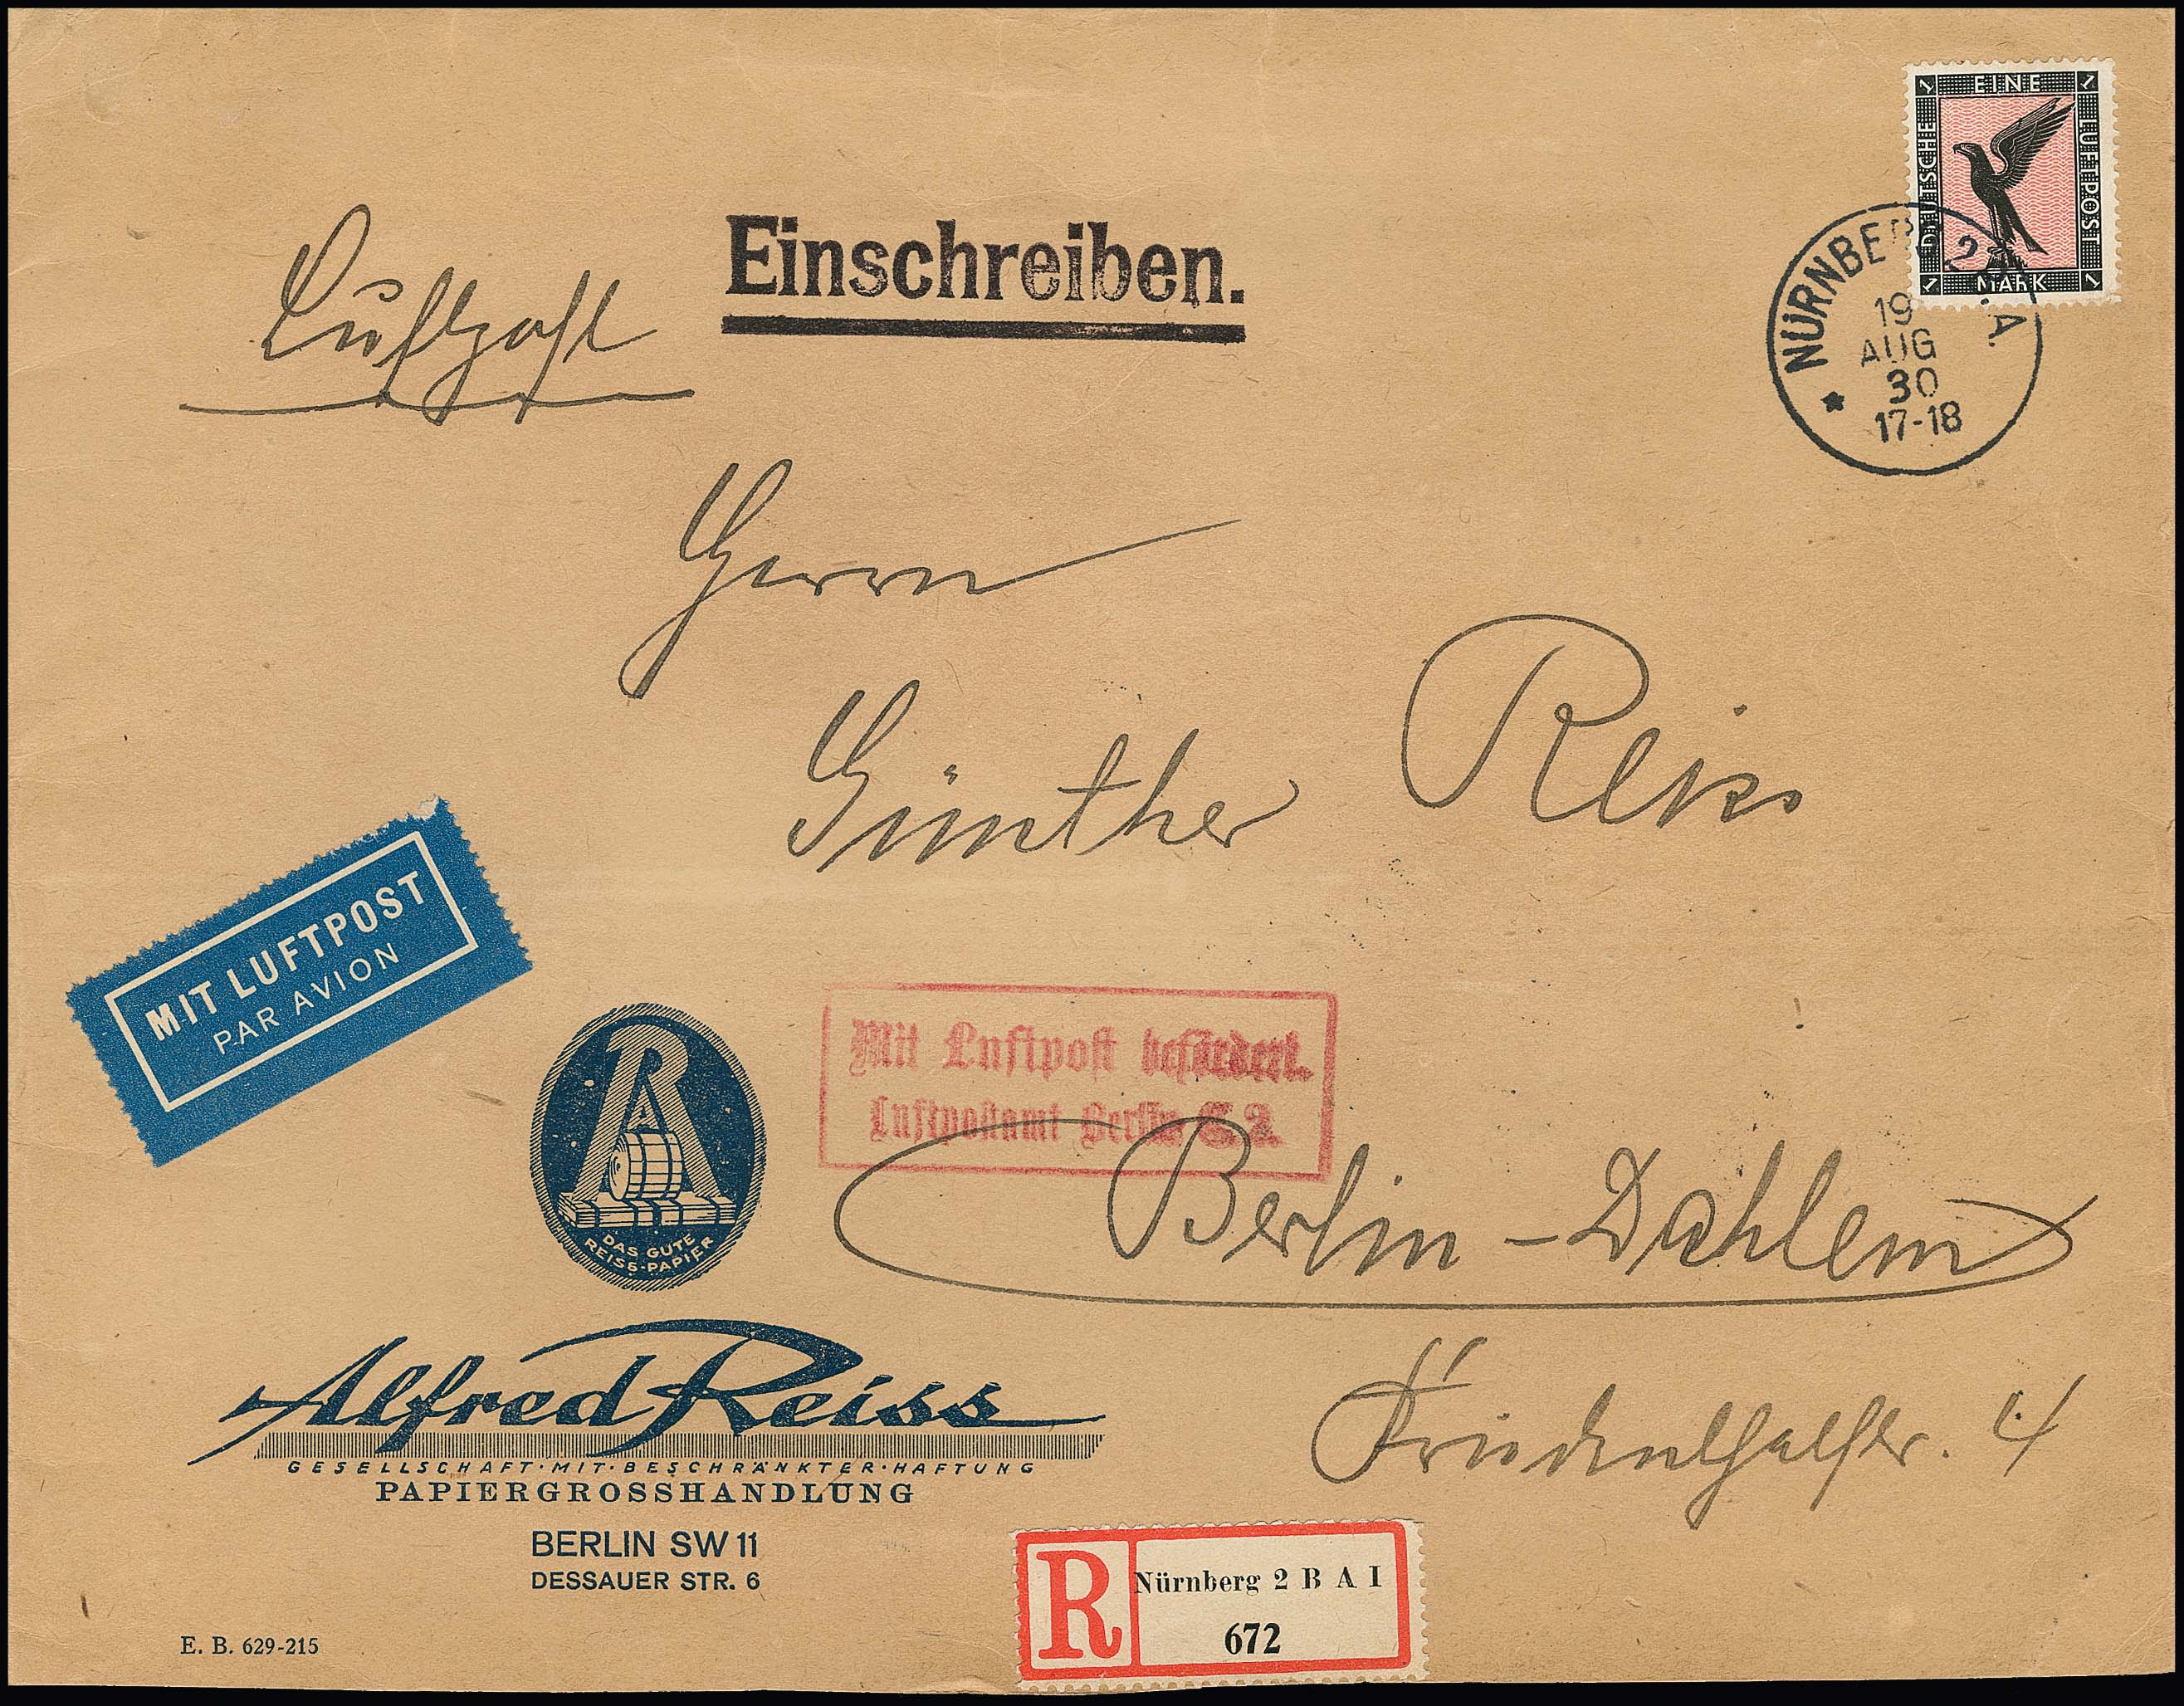 EINE
DEUTSCHE LUFTPOST
MARK
1 1 1 1
Einschreiben.
Luftpost
NÜRNBERG 2 A.
19
AUG
30
17-18
Herrn
Günther Reiss
MIT LUFTPOST
PAR AVION
Mit Luftpost befördert.
Luftpostamt Berlin C. 2.
Berlin-Dahlem
DAS GUTE
REISS-PAPIER
Alfred Reiss
GESELLSCHAFT·MIT·BESCHRÄNKTER·HAFTUNG
PAPIERGROSSHANDLUNG
BERLIN SW 11
DESSAUER STR. 6
4
R
Nürnberg 2 B A I
672
E. B. 629-215